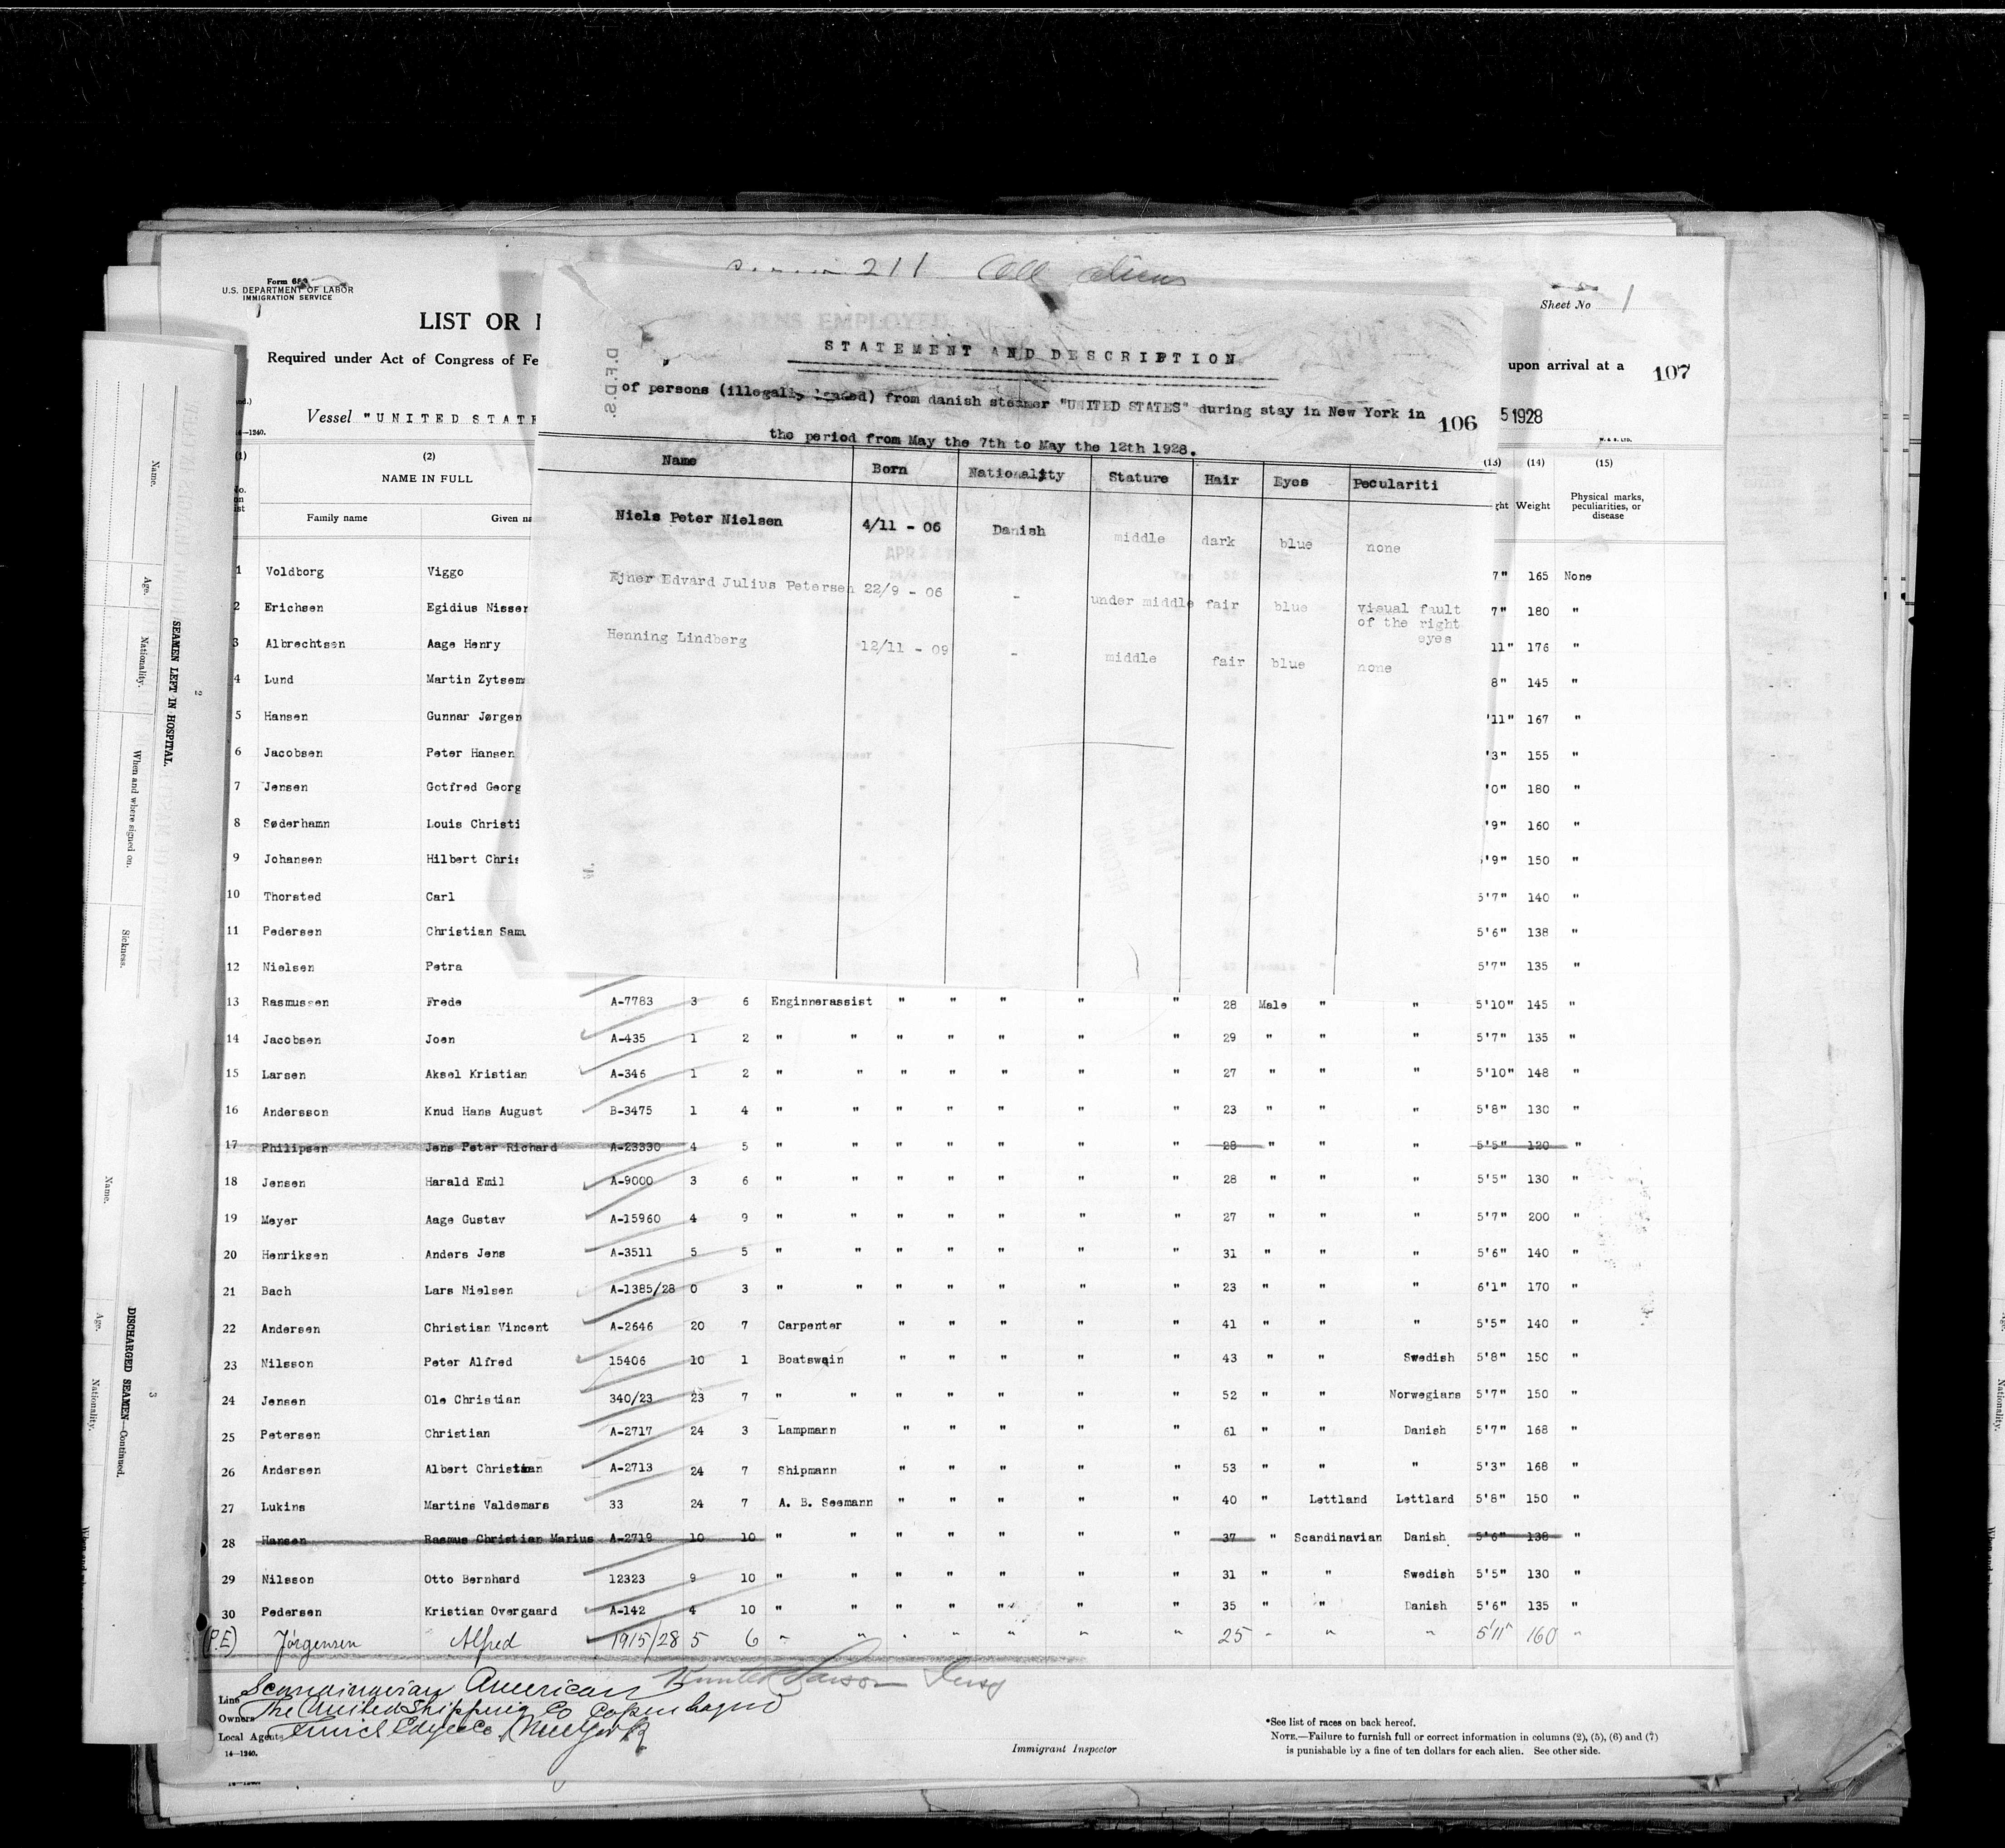 211 All aliens
Form 689
U.S. DEPARTMENT OF LABOR
IMMIGRATION SERVICE
Sheet No 1
LIST OR
Required under Act of Congress of Fe
upon arrival at a
107
Vessel "UNITED STATE
5 1928
14—1240.
W. & S. LTD.
D.F.D.S.
STATEMENT AND DESCRIPTION
of persons (illegally landed) from danish steamer "UNITED STATES" during stay in New York in
106
the period from May the 7th to May the 12th 1928.
Name Born Nationality Stature Hair Eyes Peculariti
Niels Peter Nielsen 4/11 - 06 Danish middle dark blue none
Ejner Edvard Julius Petersen 22/9 - 06 - under middle fair blue visual fault
of the right
eyes
Henning Lindberg 12/11 - 09 - middle fair blue none
(1) (2) (13) (14) (15)
NAME IN FULL
Family name Given na
ght Weight Physical marks,
peculiarities, or
disease
1 Voldborg Viggo 7" 165 None
2 Erichsen Egidius Nissen 7" 180 "
3 Albrechtsen Aage Henry 11" 176 "
4 Lund Martin Zytsem 8" 145 "
5 Hansen Gunnar Jørgen '11" 167 "
6 Jacobsen Peter Hansen '3" 155 "
7 Jensen Gotfred Georg '0" 180 "
8 Søderhamn Louis Christi '9" 160 "
9 Johansen Hilbert Chris '9" 150 "
10 Thorsted Carl 5'7" 140 "
11 Pedersen Christian Samu 5'6" 138 "
12 Nielsen Petra 5'7" 135 "
13 Rasmussen Frede A-7783 3 6 Enginnerassist " " " " " 28 Male " " 5'10" 145 "
14 Jacobsen Joen A-435 1 2 " " " " " " " 29 " " " 5'7" 135 "
15 Larsen Aksel Kristian A-346 1 2 " " " " " " " 27 " " " 5'10" 148 "
16 Andersson Knud Hans August B-3475 1 4 " " " " " " " 23 " " " 5'8" 130 "
17 Philipsen Jens Peter Richard A-23330 4 5 " " " " " " " 28 " " " 5'5" 120 "
18 Jensen Harald Emil A-9000 3 6 " " " " " " " 28 " " " 5'5" 130 "
19 Meyer Aage Gustav A-15960 4 9 " " " " " " " 27 " " " 5'7" 200 "
20 Henriksen Anders Jens A-3511 5 5 " " " " " " " 31 " " " 5'6" 140 "
21 Bach Lars Nielsen A-1385/28 0 3 " " " " " " " 23 " " " 6'1" 170 "
22 Andersen Christian Vincent A-2646 20 7 Carpenter " " " " " 41 " " " 5'5" 140 "
23 Nilsson Peter Alfred 15406 10 1 Boatswain " " " " " 43 " " Swedish 5'8" 150 "
24 Jensen Ole Christian 340/23 23 7 " " " " " " " 52 " " Norwegians 5'7" 150 "
25 Petersen Christian A-2717 24 3 Lampmann " " " " " 61 " " Danish 5'7" 168 "
26 Andersen Albert Christian A-2713 24 7 Shipmann " " " " " 53 " " " 5'3" 168 "
27 Lukins Martins Valdemars 33 24 7 A. B. Seemann " " " " " 40 " Lettland Lettland 5'8" 150 "
28 Hansen Rasmus Christian Marius A-2718 10 10 " " " " " " " 37 " Scandinavian Danish 5'6" 138 "
29 Nilsson Otto Bernhard 12323 9 10 " " " " " " " 31 " " Swedish 5'5" 130 "
30 Pedersen Kristian Overgaard A-142 4 10 " " " " " " " 35 " " Danish 5'6" 135 "
(P.E) Jørgensen Alfred 1915/28 5 6 " " " " " " " 25 " " " 5'11" 160 "
Line Scandinavian American
Owners The United Shipping Co Copenhagen
Local Agents New York
14—1240.
Immigrant Inspector
*See list of races on back hereof.
NOTE.—Failure to furnish full or correct information in columns (2), (5), (6) and (7)
is punishable by a fine of ten dollars for each alien. See other side.
SEAMEN LEFT IN HOSPITAL.
2
Name.
Age.
Nationality.
When and where signed on.
Sickness.
DISCHARGED SEAMEN—Continued.
3
Name.
Age.
Nationality.